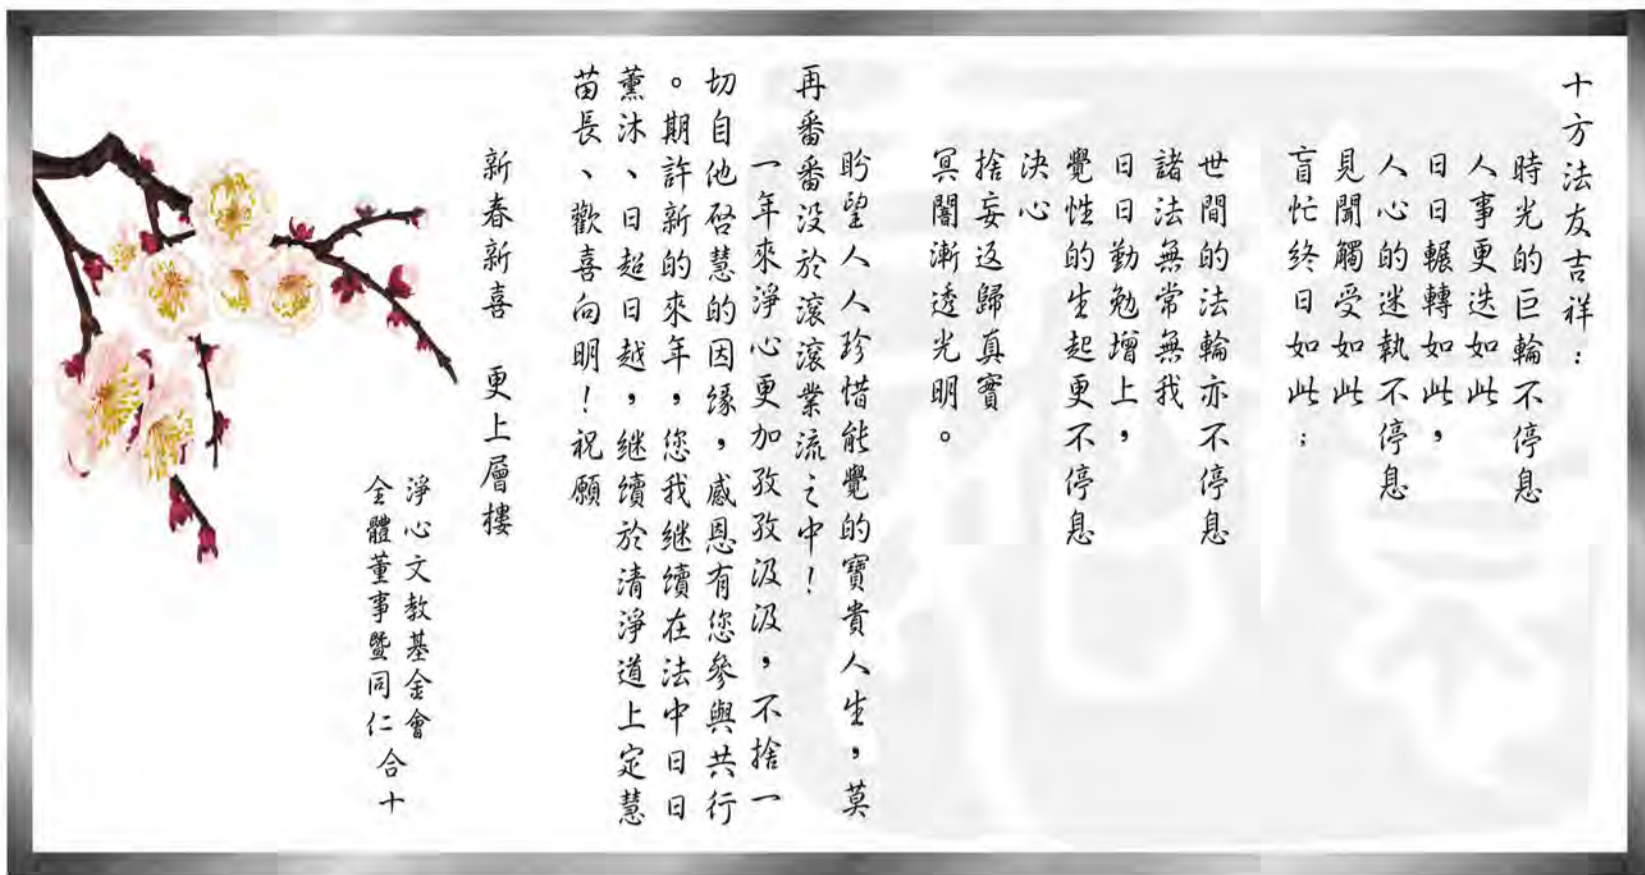 十方法友吉祥：
時光的巨輪不停息
人事更迭如此
日日輾轉如此，
人心的迷執不停息
見聞觸受如此
盲忙終日如此；
世間的法輪亦不停息
諸法無常無我
日日勤勉增上，
覺性的生起更不停息
決心
捨妄返歸真實
冥闇漸透光明。
盼望人人珍惜能覺的寶貴人生，莫
再番番没於滾滾業流之中！
一年來淨心更加孜孜汲汲，不捨一
切自他啓慧的因緣，感恩有您參與共行
。期許新的來年，您我继續在法中日日
薰沐、日超日越，继續於清淨道上定慧
苗長、歡喜向明！祝願
新春新喜　更上層樓
淨心文教基金會
全體董事暨同仁
合十